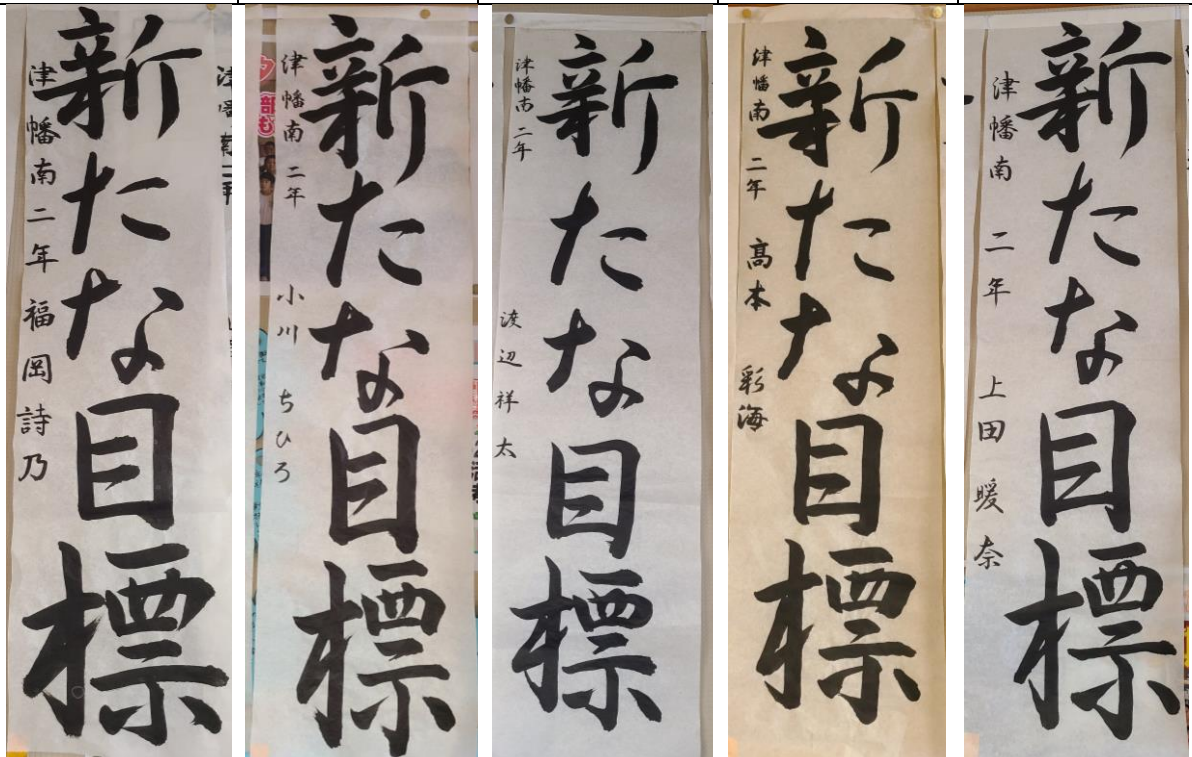 新たな目標
津幡南二年 福岡詩乃
新たな目標
津幡南 二年 小川 ちひろ
新たな目標
津幡南 二年 渡辺祥太
新たな目標
津幡南 二年 髙本 彩海
新たな目標
津幡南 二年 上田 暖奈